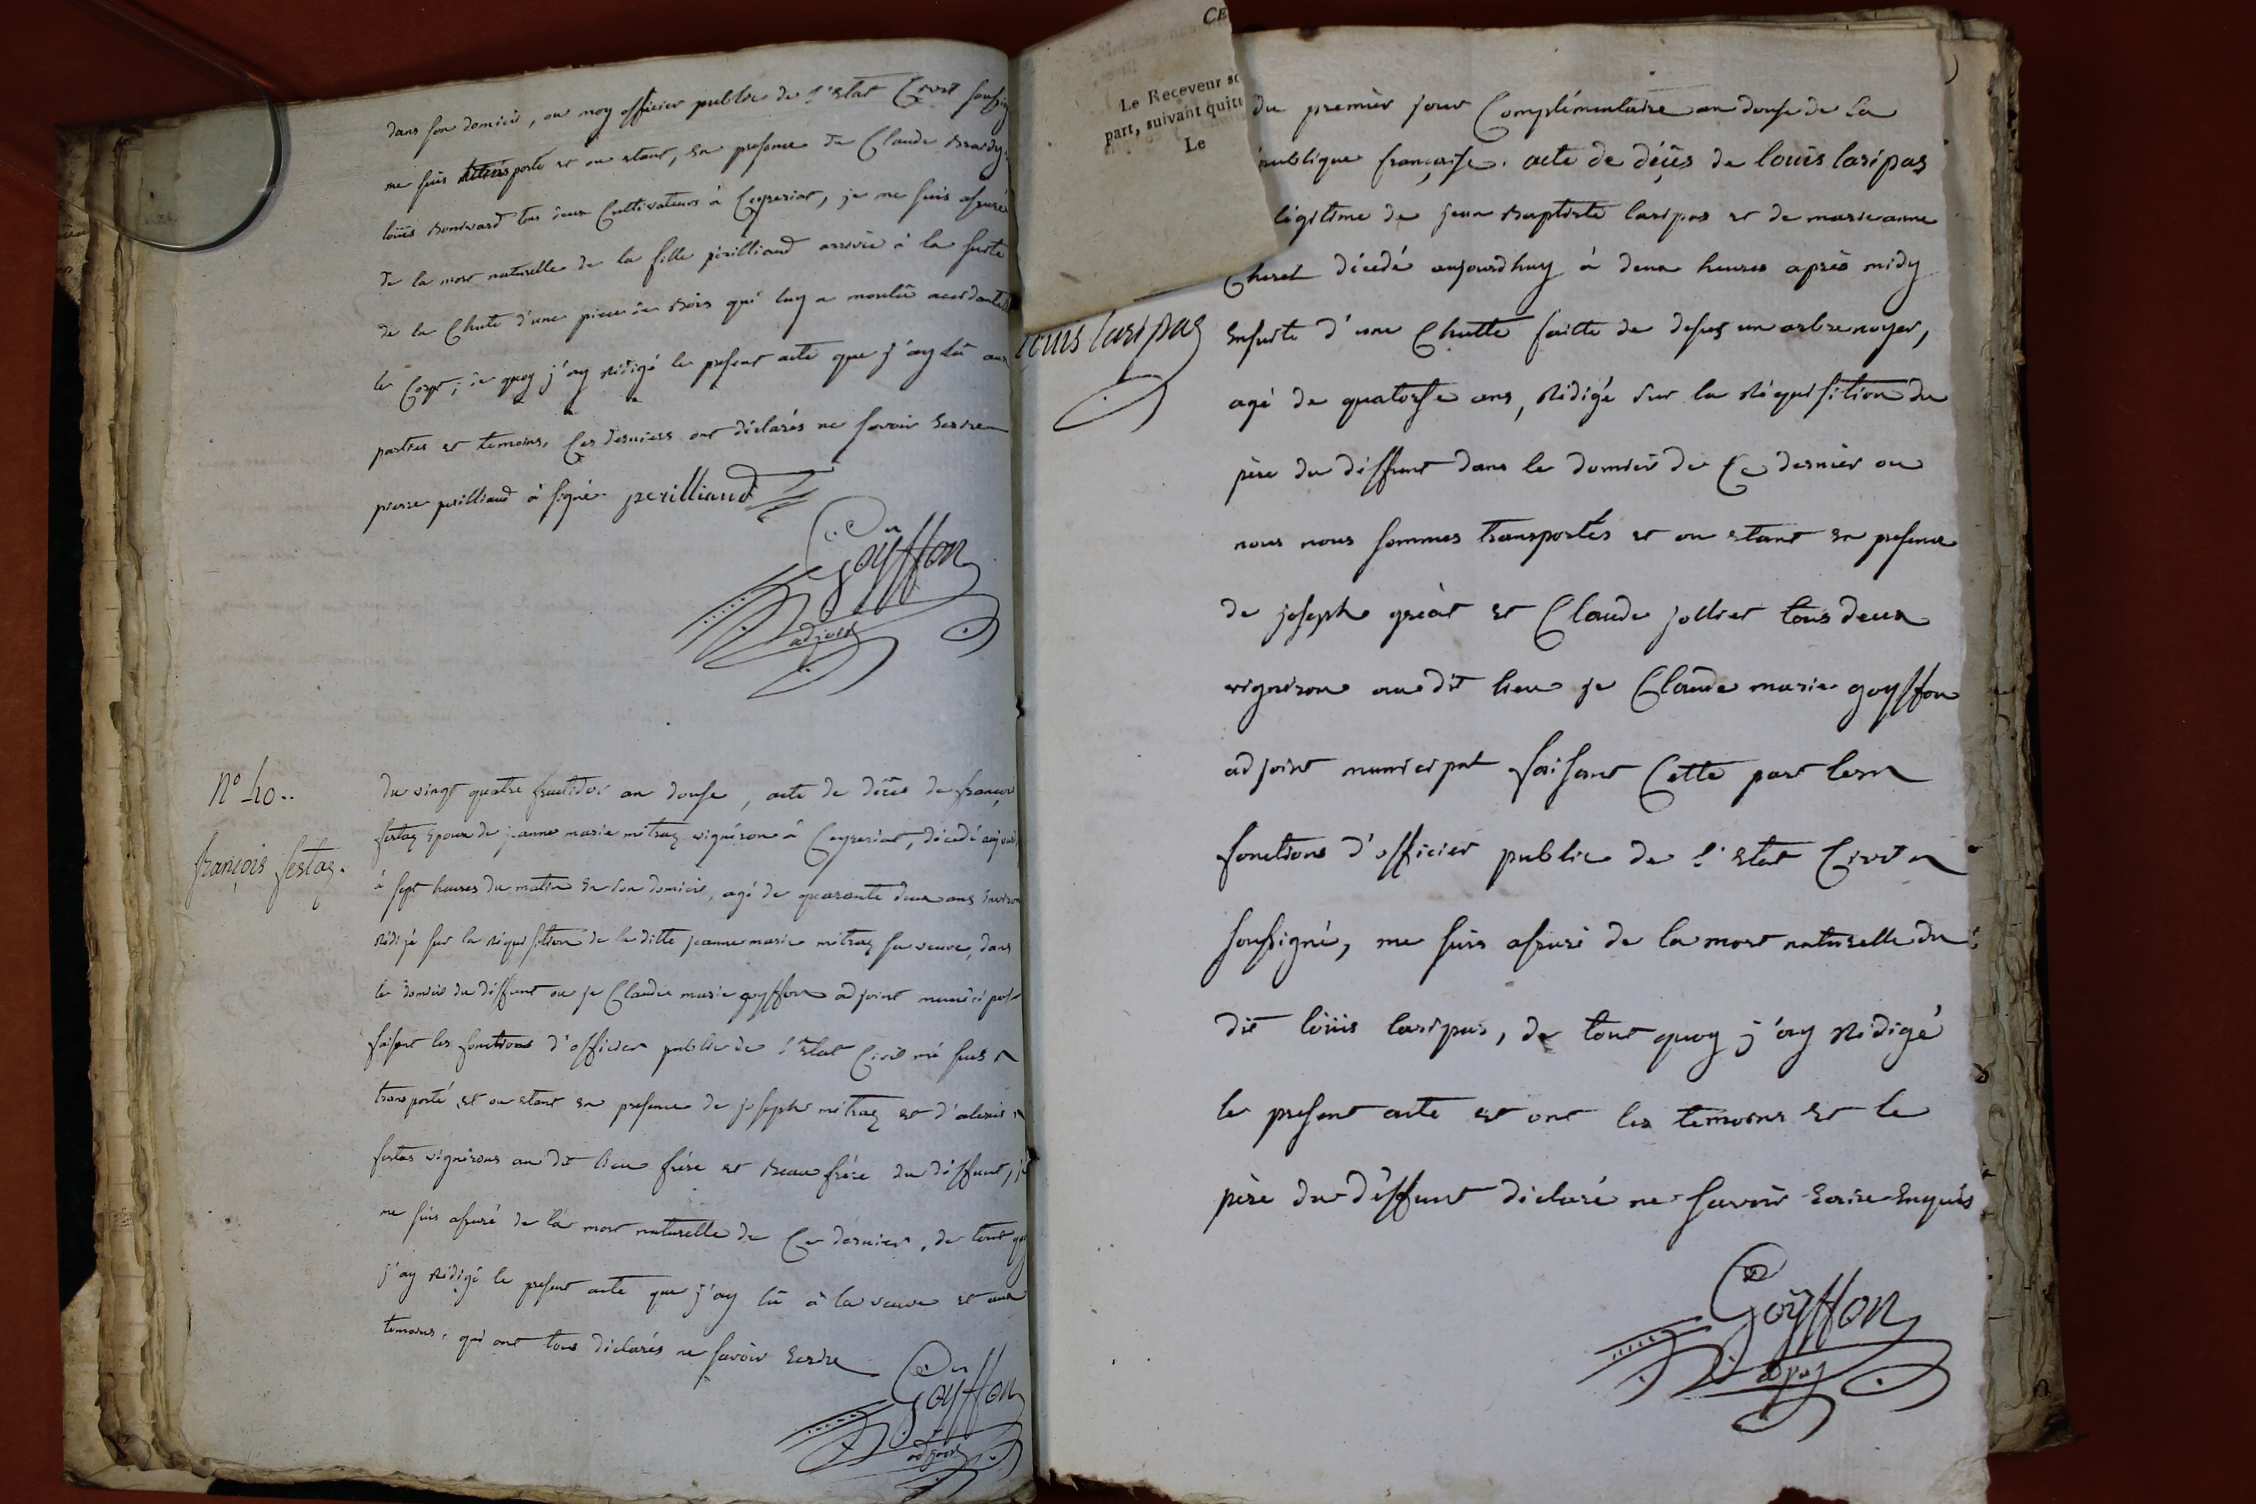 dans son domicil, ou moy officier public de l'etat Civil soussig
me suis transporté et ou etant, en presence de Claude
loüis tous deux Cultivateurs à Ceyseriat, je me suis assuré
de la mort naturelle de la fille perilliaud arrivée à la suite
de la Chute d'une piece de Bois qui luy a
le Corps; de quoy j'ay rédigé le present acte que j'ay lû aux
parties et temoins, Ces derniers ont déclarés ne savoir Ecrire
pierre perilliaud à signé. perilliaud
Goÿffon
adjoint
N° 40..
françois festaz.
du vingt quatre fructidor an douse, acte de décès de françois
festaz Epoux de jeanne marie mitraz vignéron à Ceyseriat, décédé aujourd
à sept heures du matin en son domicil, agé de quarante deux ans Environ
rédigé sur la réquisition de la ditte jeanne marie mitraz sa veuve, dans
le domicil du déffunt ou je Claude marie goyffon adjoint municipal
faisant les fonctions d'officier public de l'Etat Civil me suis
transporté et ou etant en presence de joseph mitraz et d'alexis
festas vignérons au dit lieu frère et Beau frère du déffunt, je
me suis assuré de la mort naturelle de Ce dernier, de tout quoy
j'ay rédigé le present acte que j'ay lû à la veuve et aux
temoins, qui ont tous déclarés ne savoir Ecrire
Goyffon
adjoint
CE
Le Receveur so
part, suivant quitt
Le
louis laripas
du premier jour Complémentaire an douse de la
publique française. acte de décès de loüis laripas
légitime de jean Baptiste laripas et de marie anne
Cheret décédé aujourdhuy à deux heures après midy
Ensuite d'une Chutte faitte de dessus un arbre noyer,
agé de quatorse ans, rédigé sur la réquisition du
père du déffunt dans le domicil de Ce dernier ou
nous nous sommes transportés et ou etant en presence
de joseph gréat et Claude jollier tous deux
vigneron au dit lieu je Claude marie goyffon
adjoint municipal faisant Cette part les
fonctions d'officier public de l'etat Civil
soussigné, me suis assuré de la mort naturelle du
dit loüis laripas, de tout quoy j'ay rédigé
le present acte et ont les temoins et le
père du déffunt déclaré ne savoir Ecrire Enquis
Goÿffon
adjoj